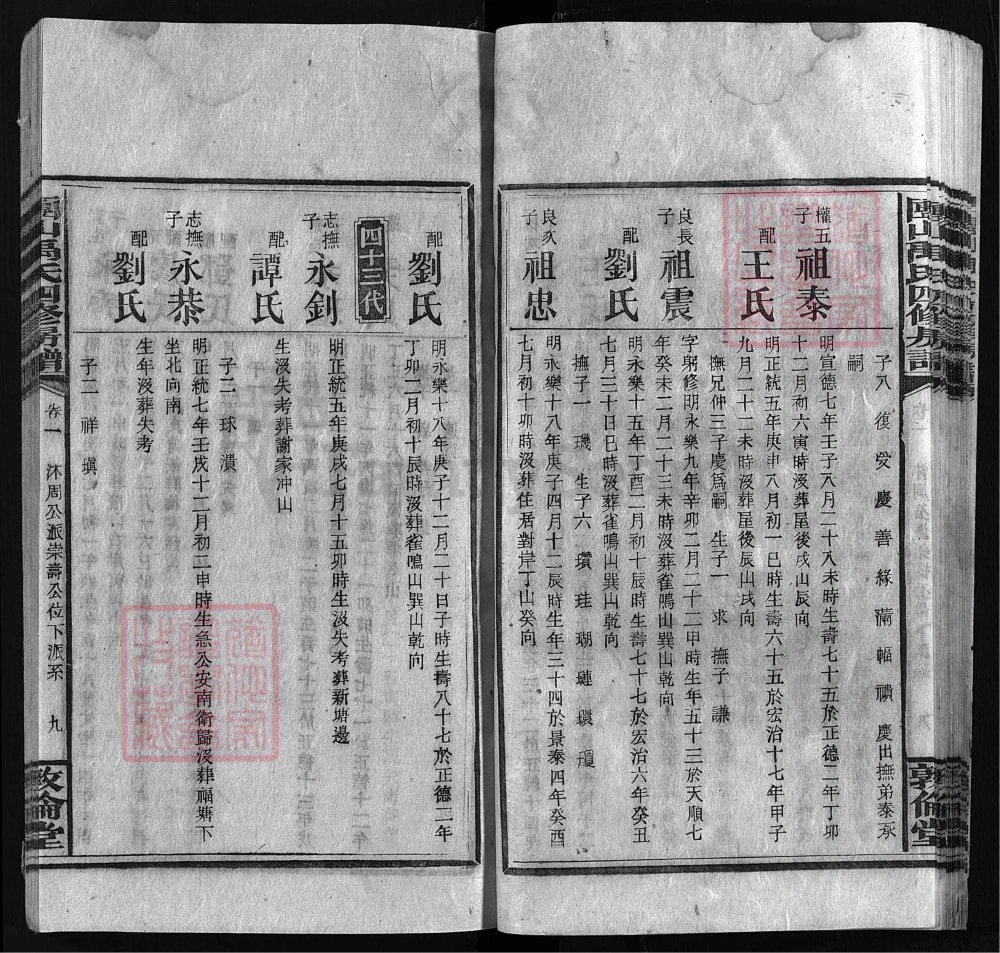 子八 復 受 慶 善 緣 滿 幅 禎 慶出撫弟泰承
嗣
權五子 祖泰 明宣德七年壬子八月二十八未時生壽七十五於正德二年丁卯
十二月初六寅時沒葬屋後戌山辰向
配 王氏 明正統五年庚申八月初一巳時生壽六十五於宏治十七年甲子
九月二十二未時沒葬屋後辰山戌向
撫兄仲三子慶爲嗣 生子一 求 撫子 謙
良長子 祖震 字躬修明永樂九年辛卯二月二十二申時生年五十三於天順七
年癸未二月二十三未時沒葬雀鳴山巽山乾向
配 劉氏 明永樂十五年丁酉二月初十辰時生壽七十七於宏治六年癸丑
七月三十日巳時沒葬雀鳴山巽山乾向
撫子一 璣 生子六 瓚 珪 瑚 璉 環 瓊
良次子 祖忠 明永樂十八年庚子四月十二辰時生年三十四於景泰四年癸酉
七月初十卯時沒葬住居對岸丁山癸向
敦倫堂
配 劉氏 明永樂十八年庚子十二月二十日子時生壽八十七於正德二年
丁卯二月初十辰時沒葬雀鳴山巽山乾向
四十三代
志撫子 永釗 明正統五年庚戌七月十五卯時生沒失考葬新塘邊
配 譚氏 生沒失考葬謝家冲山
子二 球 潰
志撫子 永恭 明正統七年壬戌十二月初二申時生急公安南衛歸沒葬福塘下
坐北向南
配 劉氏 生年沒葬失考
子二 祥 瑱
卷一 沐周公派崇壽公位下派系 九
敦倫堂